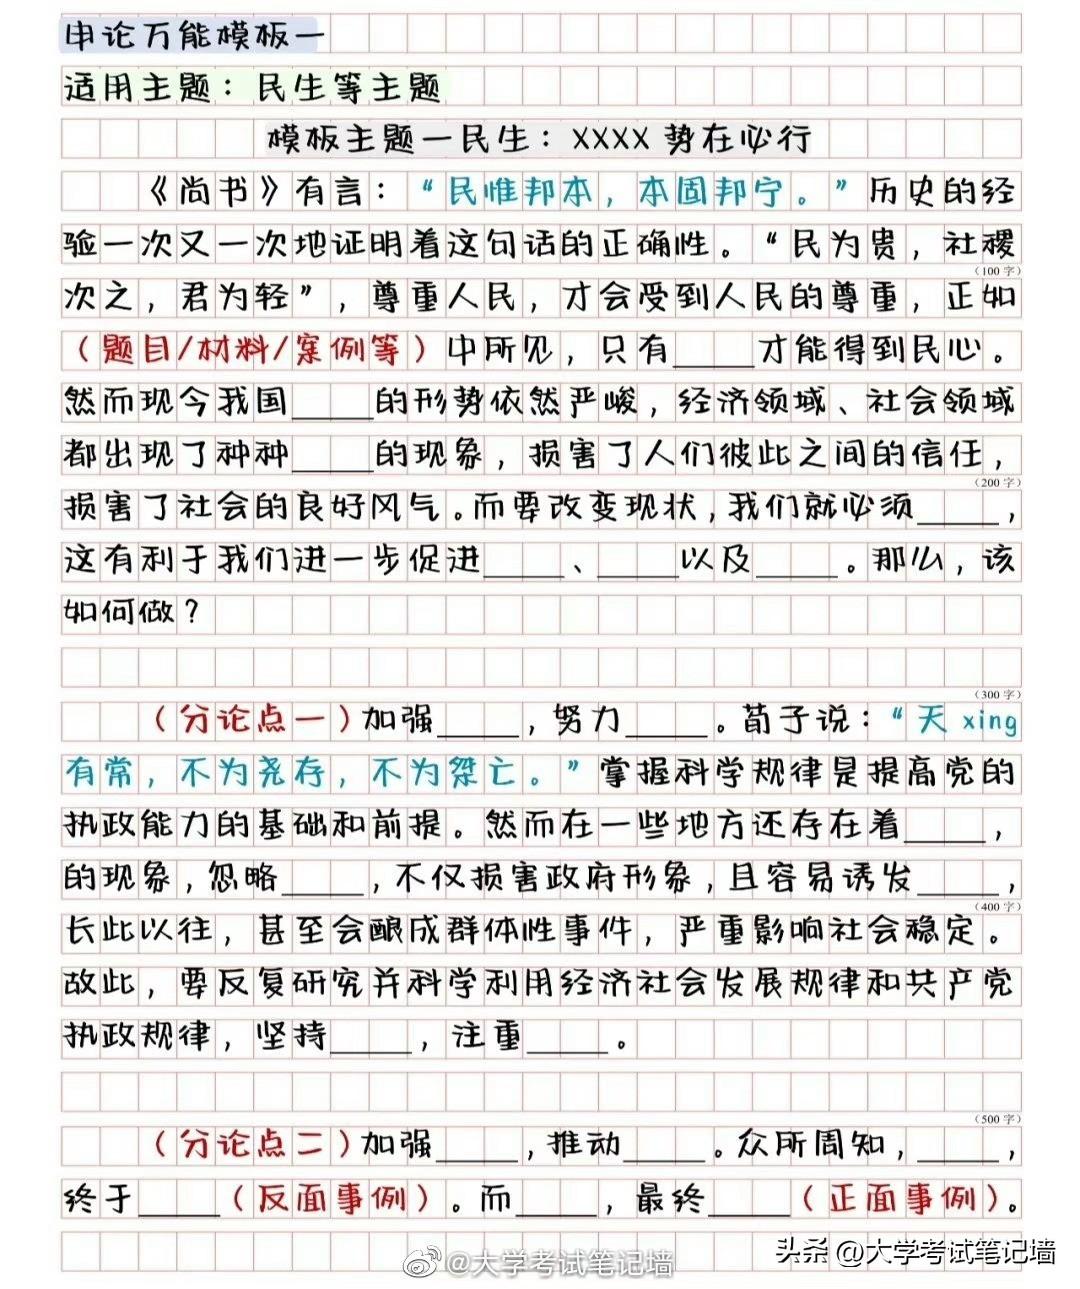 申论万能模板一
适用主题：民生等主题
模板主题一民生：XXXX 势在必行
《尚书》有言：“民惟邦本，本固邦宁。”历史的经
验一次又一次地证明着这句话的正确性。“民为贵，社稷
（100 字）
次之，君为轻”，尊重人民，才会受到人民的尊重，正如
（题目/材料/案例等）中所见，只有____才能得到民心。
然而现今我国____的形势依然严峻，经济领域、社会领域
都出现了种种____的现象，损害了人们彼此之间的信任，
（200 字）
损害了社会的良好风气。而要改变现状，我们就必须____，
这有利于我们进一步促进____、____以及____。那么，该
如何做？
（300 字）
（分论点一）加强____，努力____。荀子说：“天 xing
有常，不为尧存，不为桀亡。”掌握科学规律是提高党的
执政能力的基础和前提。然而在一些地方还存在着____，
的现象，忽略____，不仅损害政府形象，且容易诱发____，
（400 字）
长此以往，甚至会酿成群体性事件，严重影响社会稳定。
故此，要反复研究并科学利用经济社会发展规律和共产党
执政规律，坚持____，注重____。
（500 字）
（分论点二）加强____，推动____。众所周知，____，
终于____（反面事例）。而____，最终____（正面事例）。
@大学考试笔记墙
头条 @大学考试笔记墙